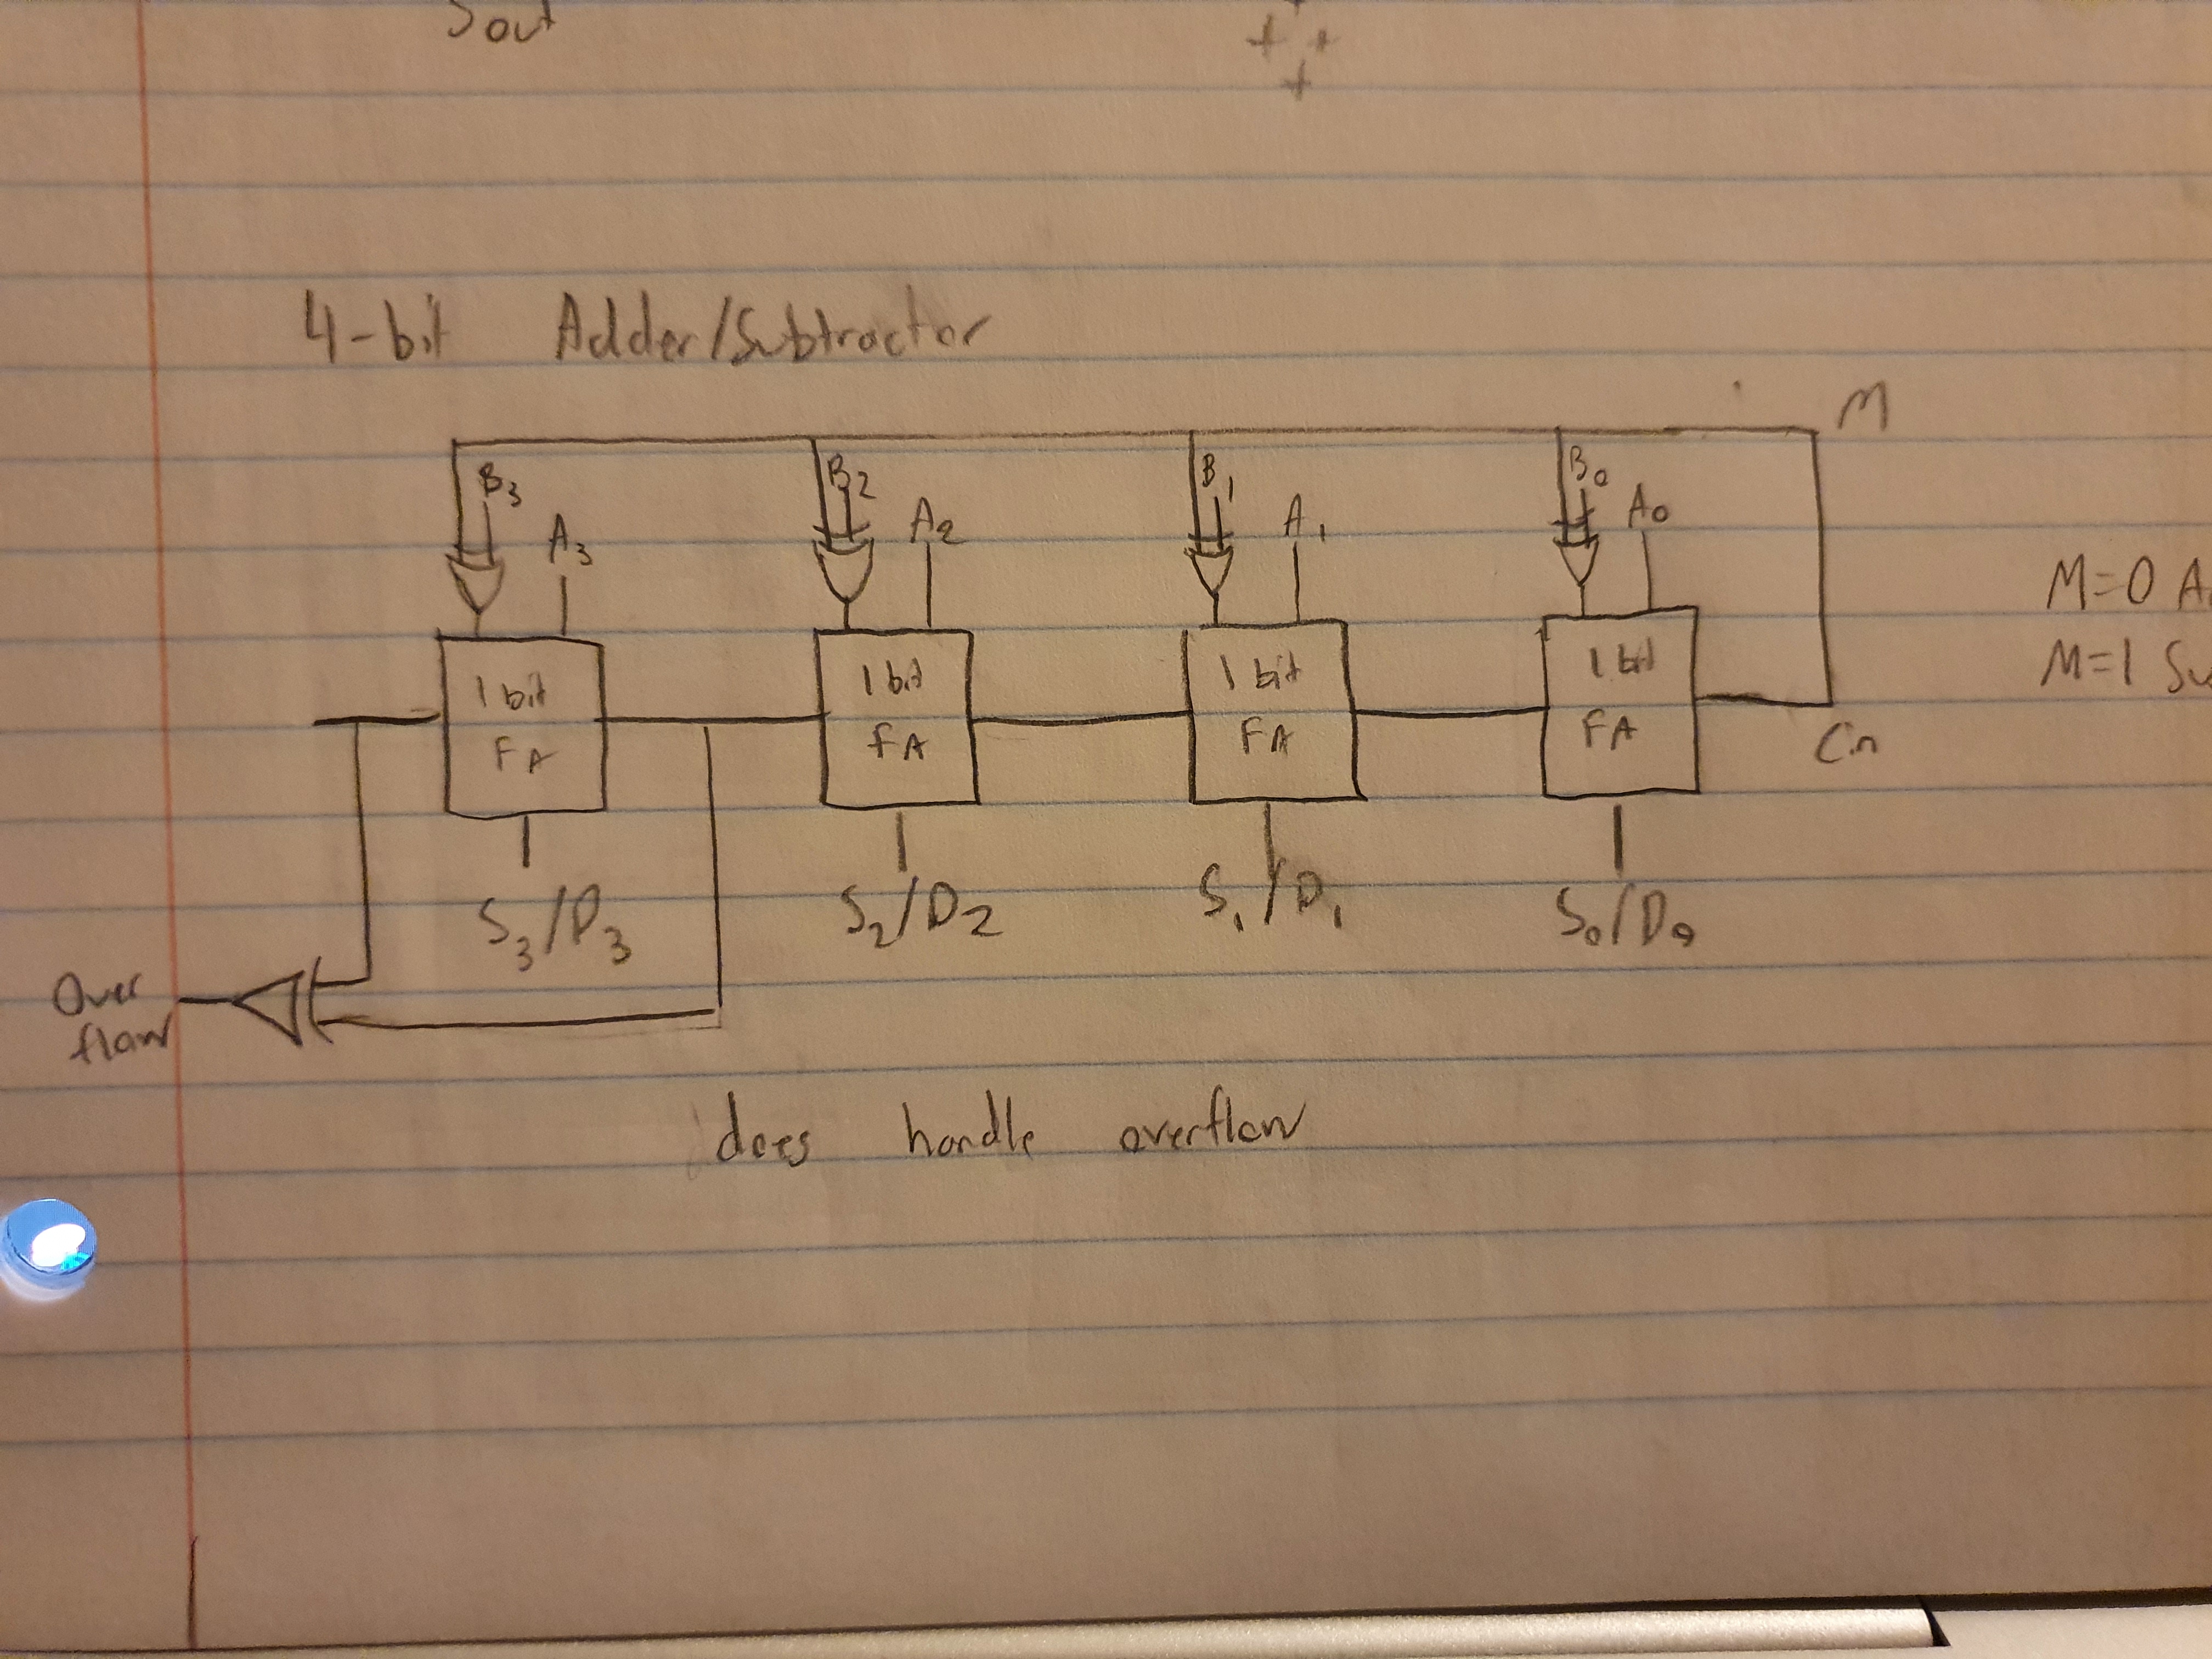 Sout
4-bit Adder/Subtractor
M
B3 B2 B1 B0
A3 A2 A1 A0
M=0 A
M=1 Su
1 bit FA 1 bit FA 1 bit FA 1 bit FA
Cin
S3/D3 S2/D2 S1/D1 S0/D0
Over
flow
does handle overflow